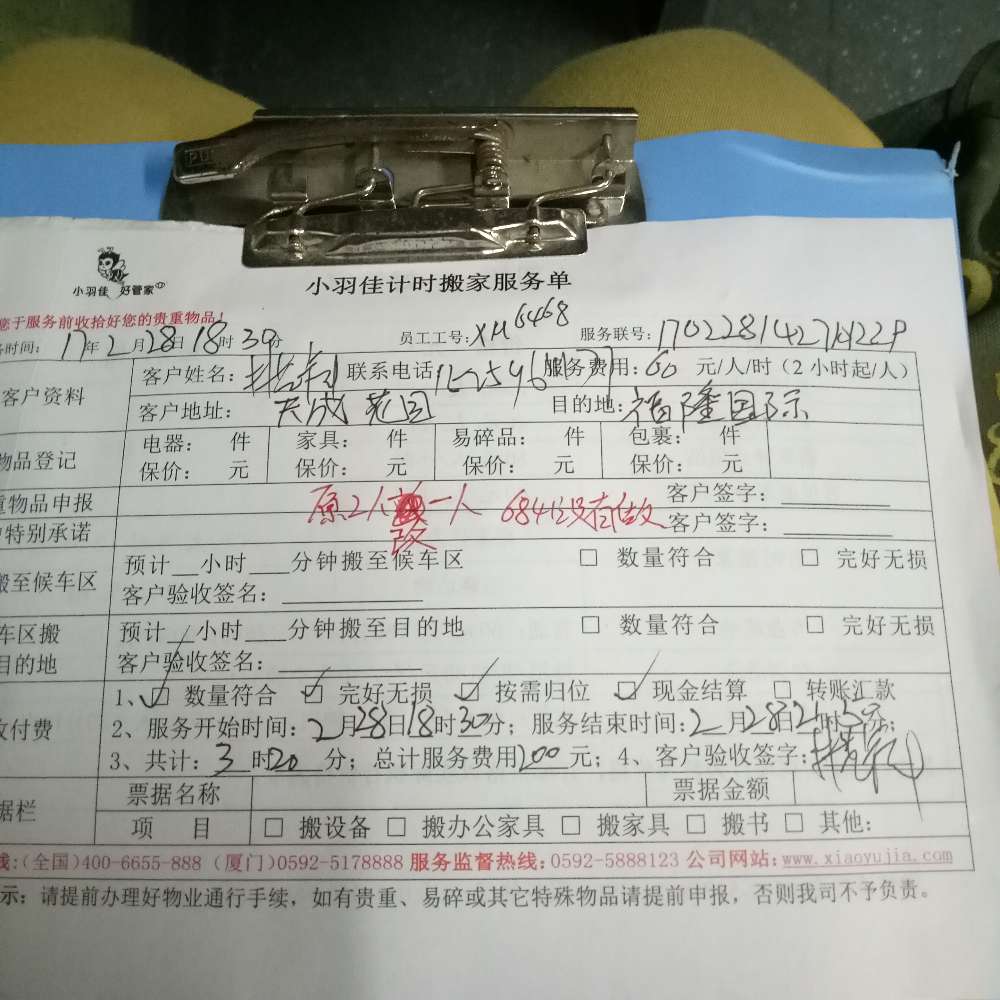 小羽佳 好管家
小羽佳计时搬家服务单
您于服务前收拾好您的贵重物品!
时间: 17年2月28日18时30分 员工工号: XM6468 服务联号:
客户资料 客户姓名: 联系电话 服务费用: 60 元/人/时(2小时起/人)
客户地址: 天成花园 目的地: 福隆国际
物品登记 电器: 件 家具: 件 易碎品: 件 包裹: 件
保价: 元 保价: 元 保价: 元 保价: 元
重物品申报 客户签字:
原2人改一人 684没有做
特别承诺 客户签字:
搬至候车区 预计__小时___分钟搬至候车区 □ 数量符合 □ 完好无损
客户验收签名:
车区搬 预计__小时___分钟搬至目的地 □ 数量符合 □ 完好无损
目的地 客户验收签名:
付费 1、☑ 数量符合 ☑ 完好无损 ☑ 按需归位 ☑ 现金结算 □ 转账汇款
2、服务开始时间: 2月28日18时30分; 服务结束时间: 2月28日21时50分;
3、共计: 3时20分; 总计服务费用200元; 4、客户验收签字:
据栏 票据名称 票据金额
项 目 □ 搬设备 □ 搬办公家具 □ 搬家具 □ 搬书 □ 其他:
线:(全国)400-6655-888 (厦门)0592-5178888 服务监督热线: 0592-5888123 公司网站: www.xiaoyujia.com
示: 请提前办理好物业通行手续, 如有贵重、易碎或其它特殊物品请提前申报, 否则我司不予负责。